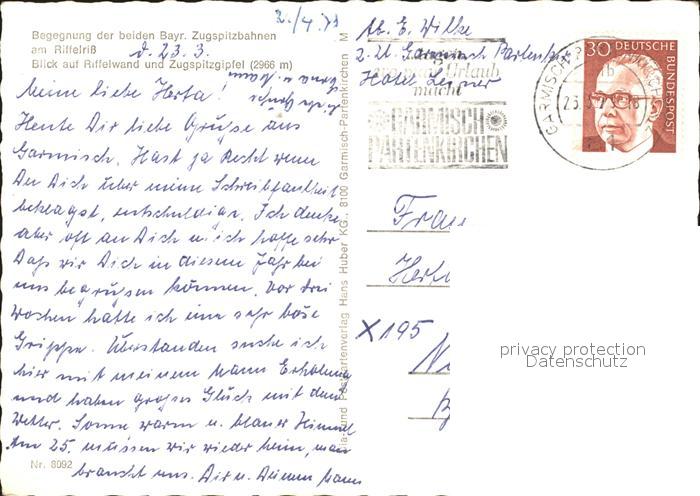 2./4.73
Begegnung der beiden Bayr. Zugspitzbahnen
am Riffelriß
Blick auf Riffelwand und Zugspitzgipfel (2966 m)
d. 23.3.
Meine liebe Herta!
Heute Dir liebe Grüße aus
Garmisch. Hast ja Recht wenn
Du Dich über meine Schreibfaulheit
beklagst, entschuldige. Ich denke
aber oft an Dich u. ich hoffe sehr
Daß wir Dich in diesem Jahr bei
uns begrüßen können. Vor drei
Wochen hatte ich eine sehr böse
Grippe. Überstanden suche ich
hier mit meinem Mann Erholung
und haben großes Glück mit dem
Wetter. Sonne warm u. blauer Himmel
Am 25. müssen wir wieder heim, man
braucht uns. Dir u. Deinem
Nr. 8092
Postkartenverlag Hans Huber KG., 8100 Garmisch-Partenkirchen M
Abs. E. Wilke
z. Zt. Garmisch Partenk
Hotel
Urlaub
macht
GARMISCH
PARTENKIRCHEN
GARMISCH-P
30 DEUTSCHE
BUNDESPOST
Frau
Herta
X 195
privacy protection
Datenschutz